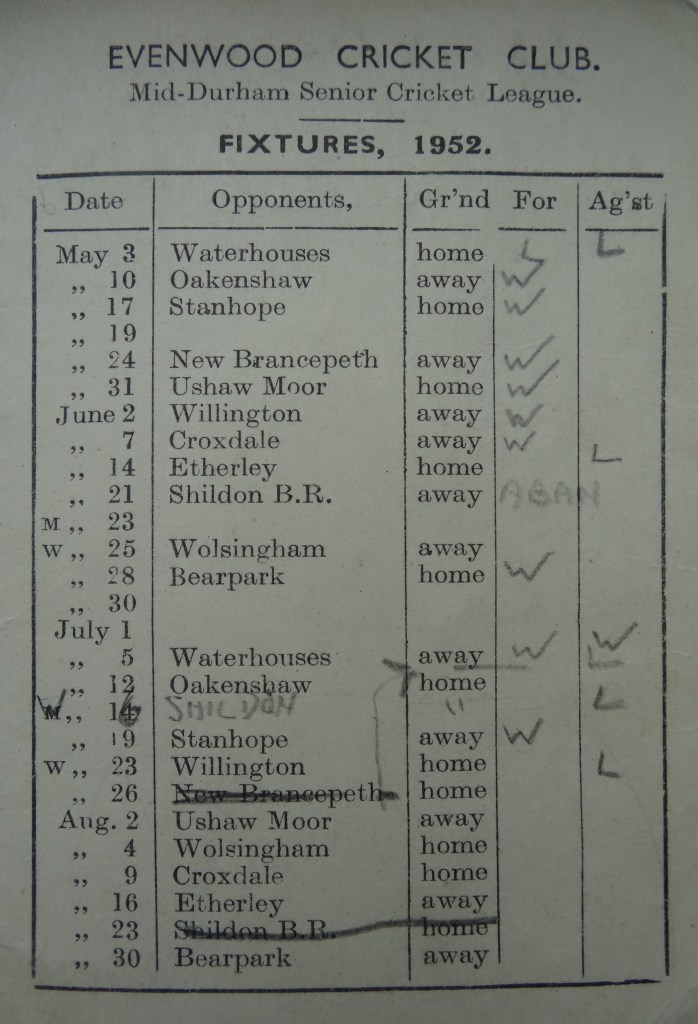 EVENWOOD CRICKET CLUB.
Mid-Durham Senior Cricket League.
FIXTURES, 1952.
Date Opponents, Gr'nd For Ag'st
May 3 Waterhouses home L L
„ 10 Oakenshaw away W
„ 17 Stanhope home W
„ 19
„ 24 New Brancepeth away W
„ 31 Ushaw Moor home W
June 2 Willington away W
„ 7 Croxdale away W
„ 14 Etherley home L
„ 21 Shildon B.R. away ABAN
M „ 23
W „ 25 Wolsingham away
„ 28 Bearpark home W
„ 30
July 1
„ 5 Waterhouses away W W L
„ 12 Oakenshaw home L
W „ SHILDON "
„ 19 Stanhope away W
W „ 23 Willington home L
„ 26 New Brancepeth home
Aug. 2 Ushaw Moor away
„ 4 Wolsingham home
„ 9 Croxdale home
„ 16 Etherley away
„ 23 Shildon B.R. home
„ 30 Bearpark away